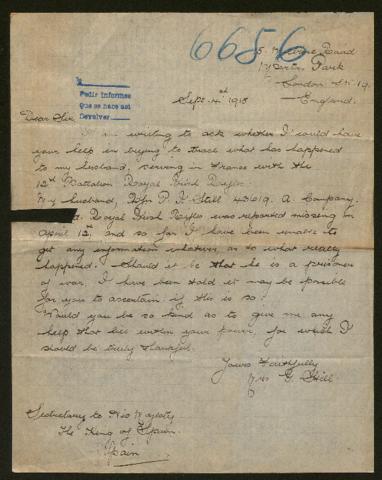 6686
5, Road
Park
London S.W. 19.
England.
Pedir informes
Que se hace así
Devolver
Sept. 4th 1918
Dear Sir
I am writing to ask whether I could have
your help in trying to trace what has happened
to my husband, serving in France with the
12th Battalion Royal Irish Rifles.
My husband, Rfn P. Still 43619. A Company.
Royal Irish Rifles was reported missing in
April 12th, and so far I have been unable to
get any information whatever as to what really
happened. Should it be that he is a prisoner
of war, I have been told it may be possible
for you to ascertain if this is so.
Would you be so kind as to give me any
help that lies within your power, for which I
should be truly thankful.
Yours Faithfully
Mrs G. Still
Secretary to His Majesty
The King of Spain.
Spain